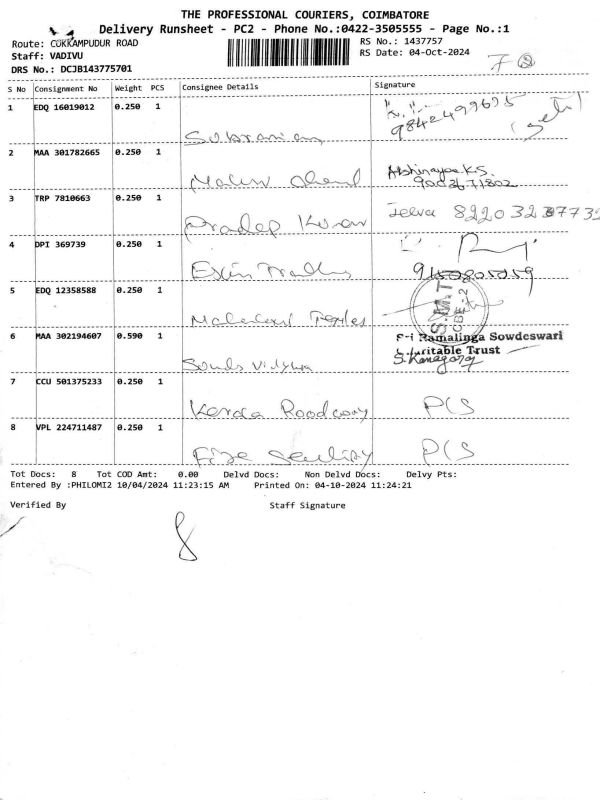 THE PROFESSIONAL COURIERS, COIMBATORE
Delivery Runsheet - PC2 - Phone No.:0422-3505555 - Page No.:1
Route: COKKAMPUDUR ROAD
RS No.: 1437757
Staff: VADIVU
RS Date: 04-Oct-2024
DRS No.: DCJB143775701
S No Consignment No Weight PCS Consignee Details Signature
1 EDQ 16019012 0.250 1
9842499695
2 MAA 301782665 0.250 1
Abhinayaa K.S.
9003671802
3 TRP 7810663 0.250 1
Pradep Kumar Jeeva
4 DPI 369739 0.250 1
5 EDQ 12358588 0.250 1
S.M.T
CBE-2
6 MAA 302194607 0.590 1
Sri Ramalinga Sowdeswari
Charitable Trust
S. Kanagaraj
7 CCU 501375233 0.250 1
Kerala Roadway PCS
8 VPL 224711487 0.250 1
PCS
Tot Docs: 8 Tot COD Amt: 0.00 Delvd Docs: Non Delvd Docs: Delvy Pts:
Entered By :PHILOMI2 10/04/2024 11:23:15 AM Printed On: 04-10-2024 11:24:21
Verified By Staff Signature
8